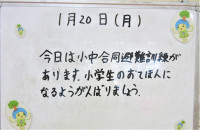 1月20日(月)
今日は小中合同避難訓練が
あります。小学生のおてほんに
なるようがんばりましょう。